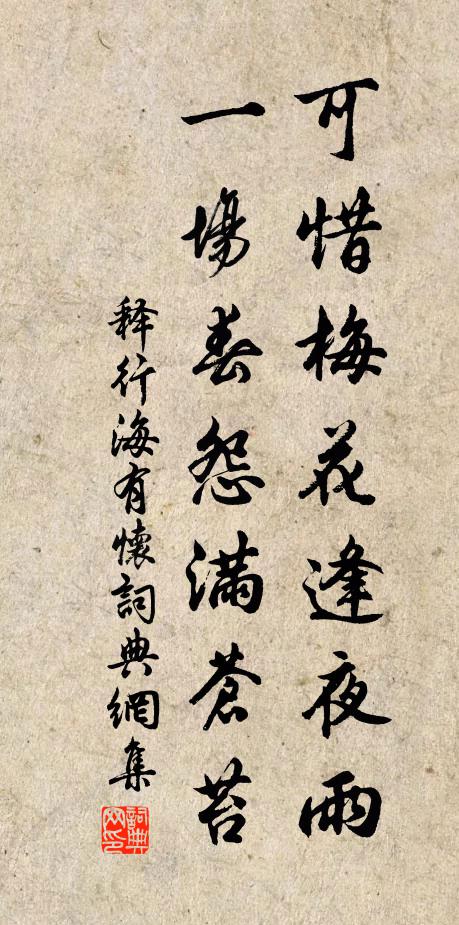 可惜梅花逢夜雨
一場春怨滿蒼苔
释行海有懷詞典網集
詞典网印